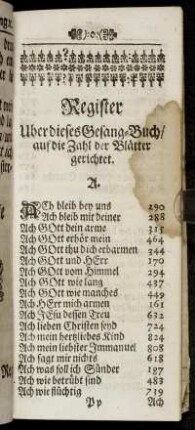 ):o:(
Register
Uber dieses Gesang-Buch/
auf die Zahl der Blätter
gerichtet.
A.
ACh bleib bey uns 290
Ach bleib mit deiner 288
Ach GOtt dein arme 315
Ach GOtt erhör mein 464
Ach GOtt thu dich erbarmen 344
Ach GOtt und HErr 170
Ach GOtt vom Himmel 294
Ach GOtt wie lang 437
Ach GOtt wie manches 449
Ach HErr mich armen 161
Ach JEsu dessen Treu 632
Ach lieben Christen seyd 724
Ach mein hertzliches Kind 824
Ach mein liebster Immanuel 808
Ach sagt mir nichts 618
Ach was soll ich Sünder 187
Ach wie betrübt sind 483
Ach wie flüchtig 739
Pp Ach